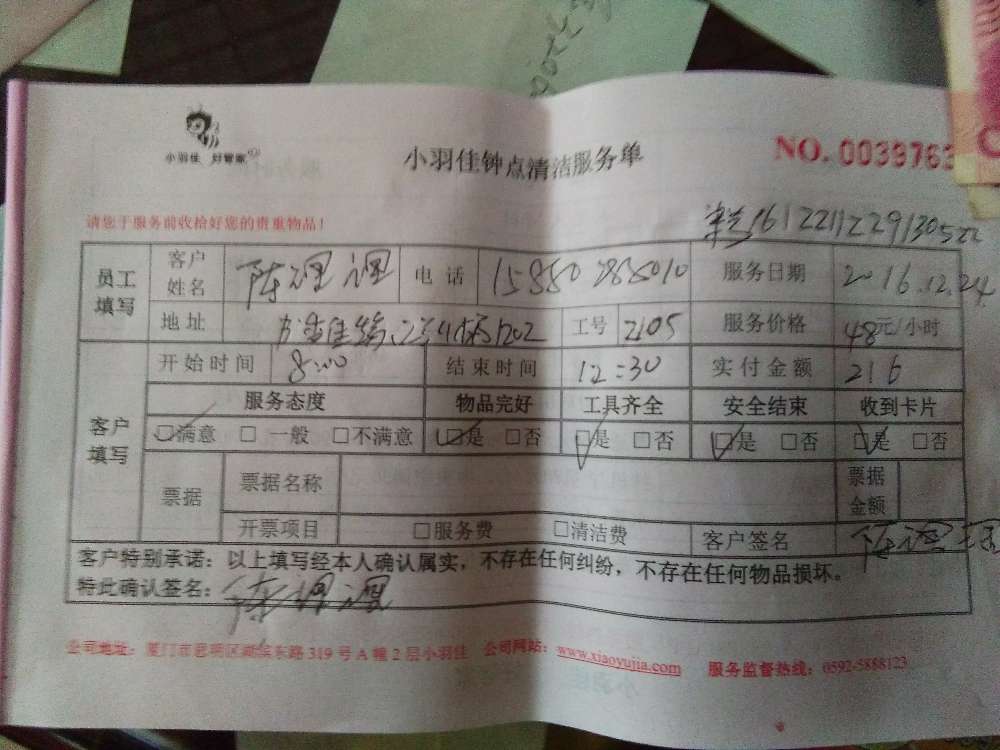 小羽佳 好管家
小羽佳钟点清洁服务单
NO. 0039763
请您于服务前收拾好您的贵重物品!
1612211229130522
员工填写 客户姓名 陈 电话 服务日期 2016.12.24
地址 1202 工号 2105 服务价格 48元/小时
客户填写 开始时间 8:00 结束时间 12:30 实付金额 216
服务态度 物品完好 工具齐全 安全结束 收到卡片
☑满意 □一般 □不满意 ☑是 □否 ☑是 □否 ☑是 □否 ☑是 □否
票据 票据名称 票据金额
开票项目 □服务费 □清洁费 客户签名 陈
客户特别承诺:以上填写经本人确认属实,不存在任何纠纷,不存在任何物品损坏。
特此确认签名:陈
公司地址:厦门市思明区湖滨东路319号A幢2层小羽佳 公司网站:www.xiaoyujia.com 服务监督热线:0592-5888123